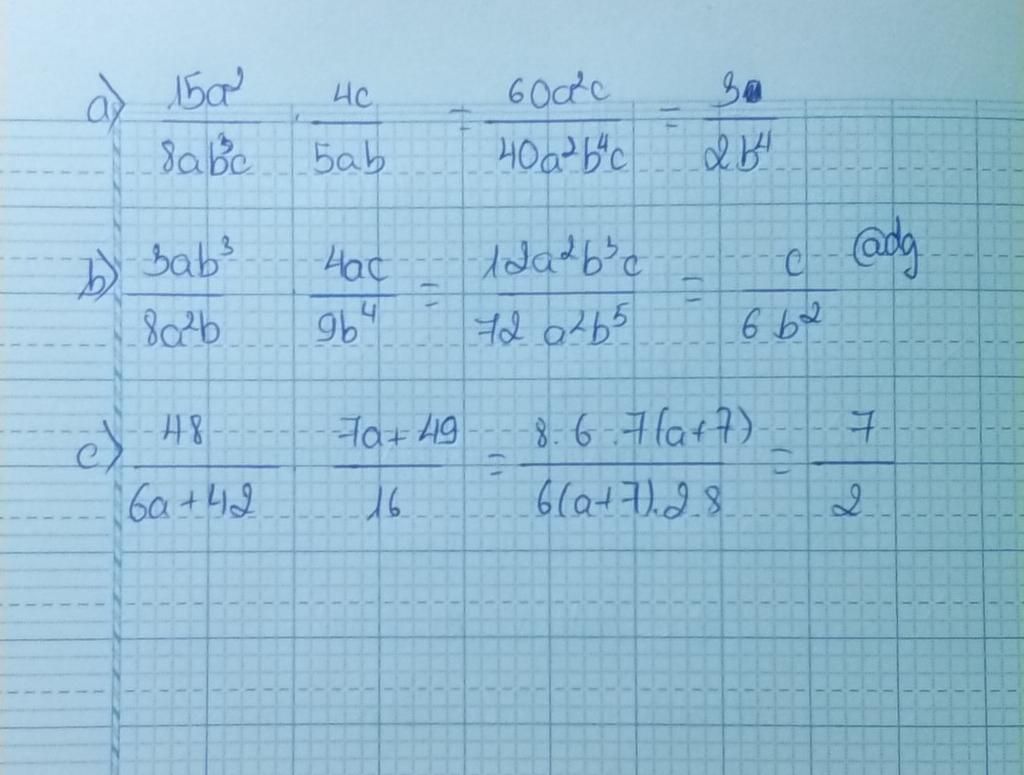 a) 15a²/8ab³c · 4c/5ab = 60a²c/40a²b⁴c = 3/2b⁴
b) 3ab³/8a²b 4ac/9b⁴ = 12a²b³c/72 a²b⁵ = c/6 b² @dg
c) 48/6a+42 7a+49/16 = 8.6.7(a+7)/6(a+7).2 8 = 7/2